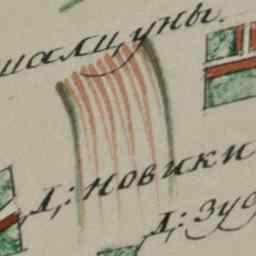 шалцуны.
д: новики
д: зуб